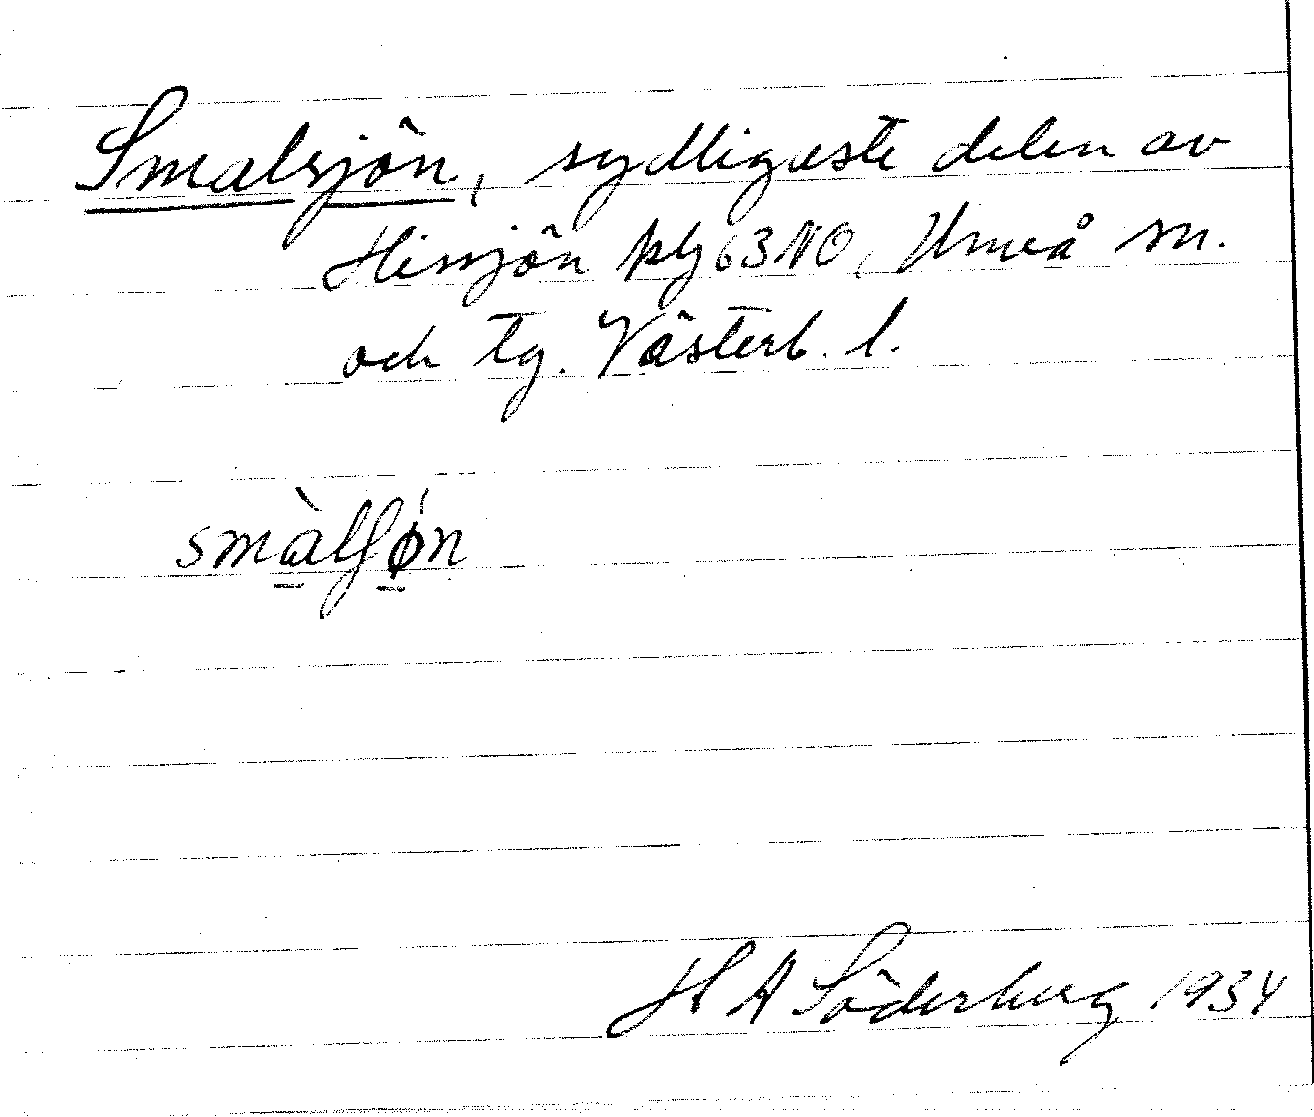 Smalsjön, sydligaste delen av
Hissjön kbl 63 NO, Umeå sn.
och tg. Västerb. l.
smàlʃǿn
H A Söderberg 1934